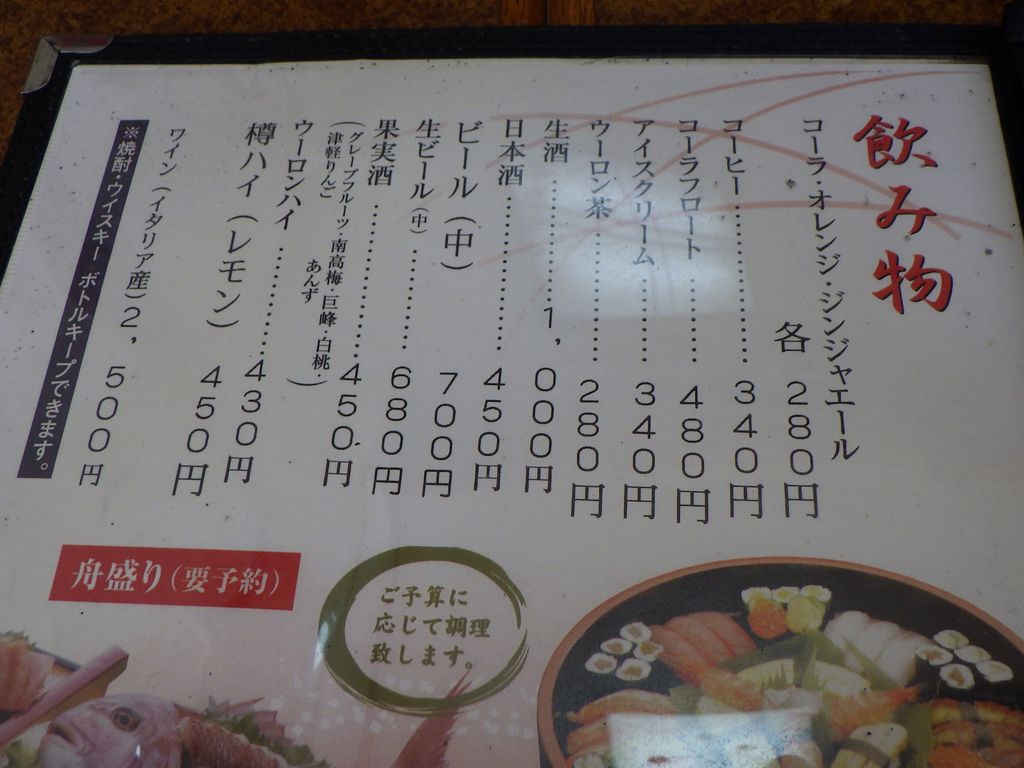 飲み物
コーラ・オレンジ・ジンジャエール
各 280円
コーヒー…………340円
コーラフロート………480円
アイスクリーム………340円
ウーロン茶…………280円
生酒…………1,000円
日本酒…………450円
ビール（中） 700円
生ビール（中）………680円
果実酒…………450円
（グレープフルーツ・南高梅・巨峰・白桃・
津軽りんご あんず）
ウーロンハイ…………430円
樽ハイ（レモン） 450円
ワイン（イタリア産）2,500円
※焼酎・ウイスキー ボトルキープできます。
舟盛り（要予約）
ご予算に
応じて調理
致します。